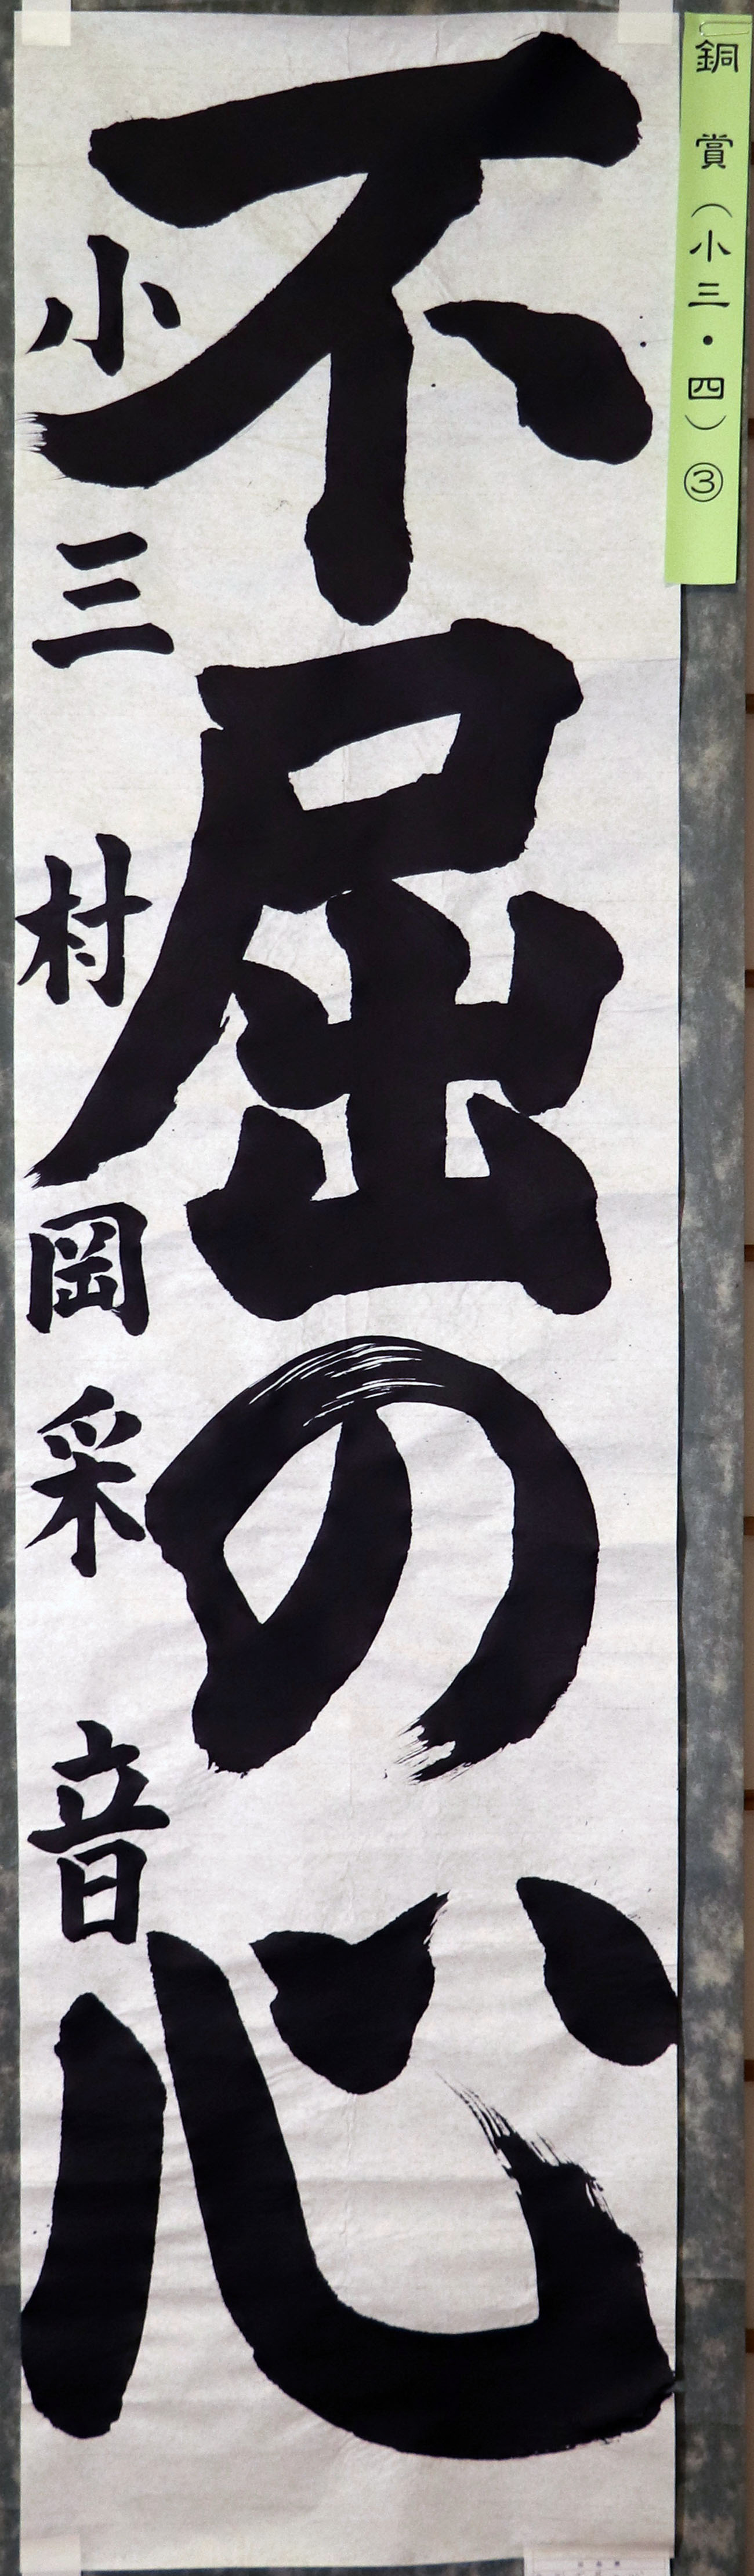 銅賞(小三・四)③
不屈の心
小三 村岡采音